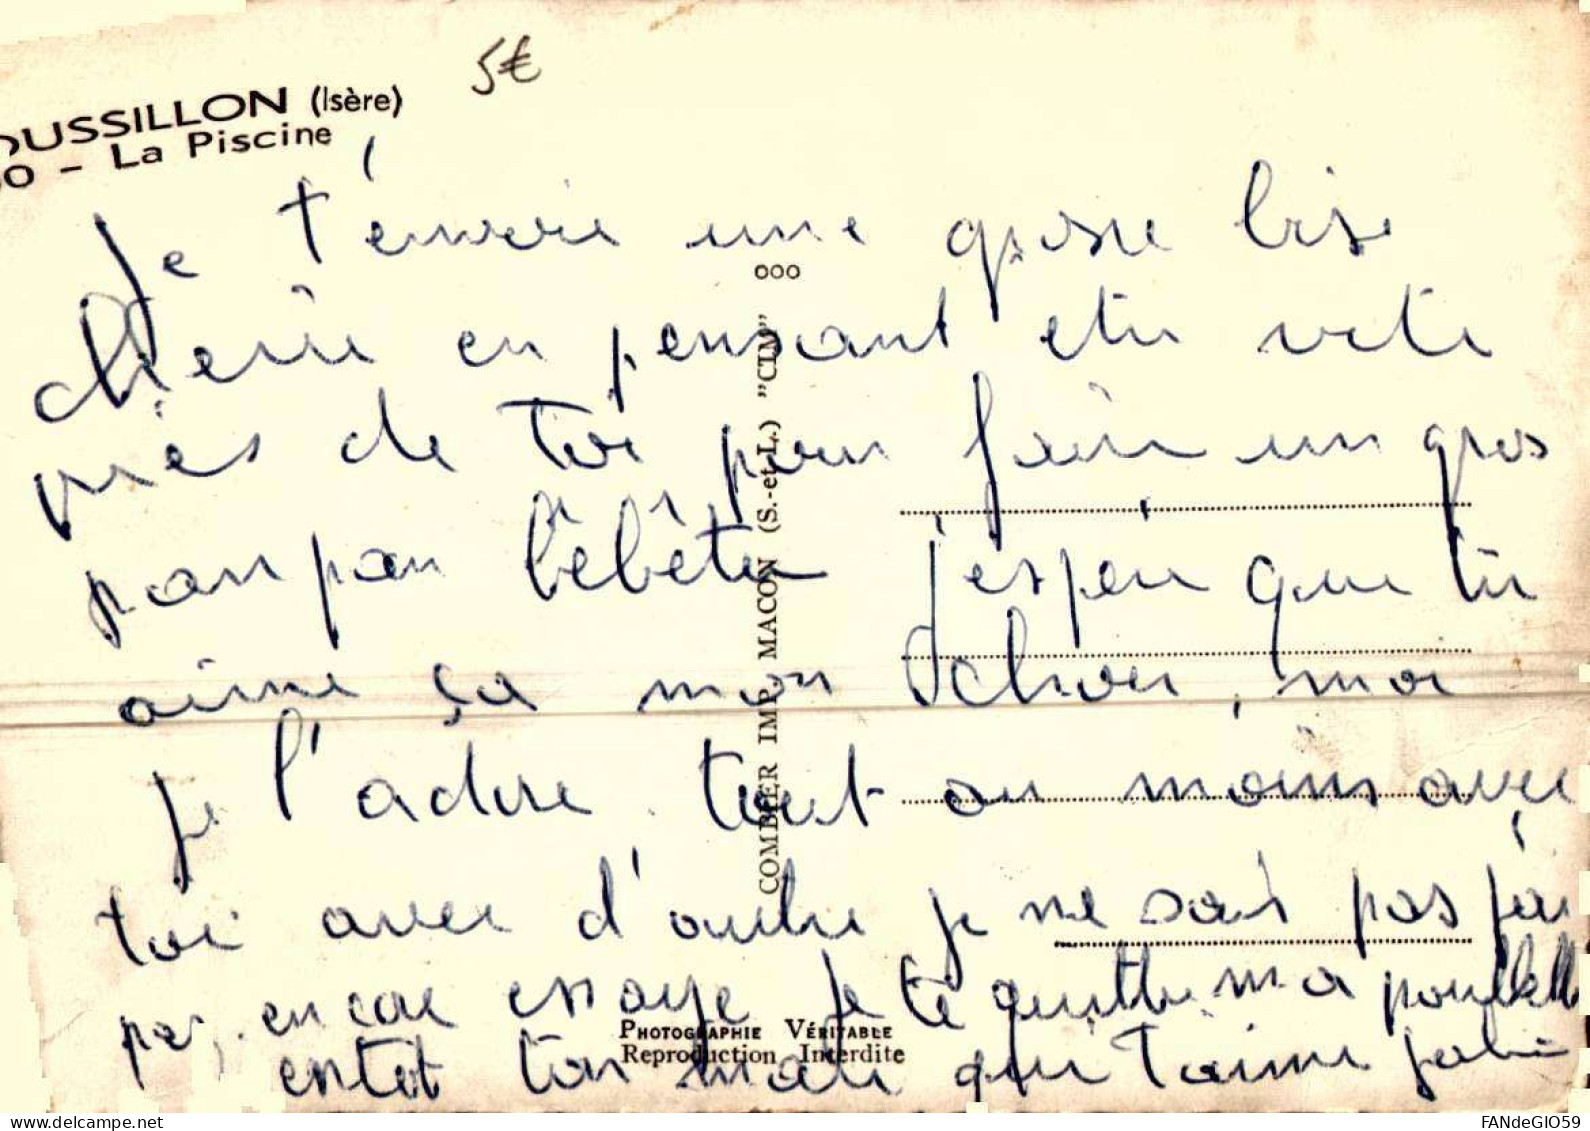 OUSSILLON (Isère)
0 - La Piscine
5€
Je t'envoie une grosse bise
chérie en pensant etre vite
près de toi pour faire un gros
panpan j'espère que tu
aime ça mon , moi
je l'adore. tout au moins avec
toi avec d'autre je ne sais pas j'ai
pas encore essaye je te quitte ma
ton mari qui t'aime
ooo
COMBIER IMP. MACON (S.-et-L.) "CIM"
PHOTOGRAPHIE VÉRITABLE
Reproduction Interdite
FANdeGIO59